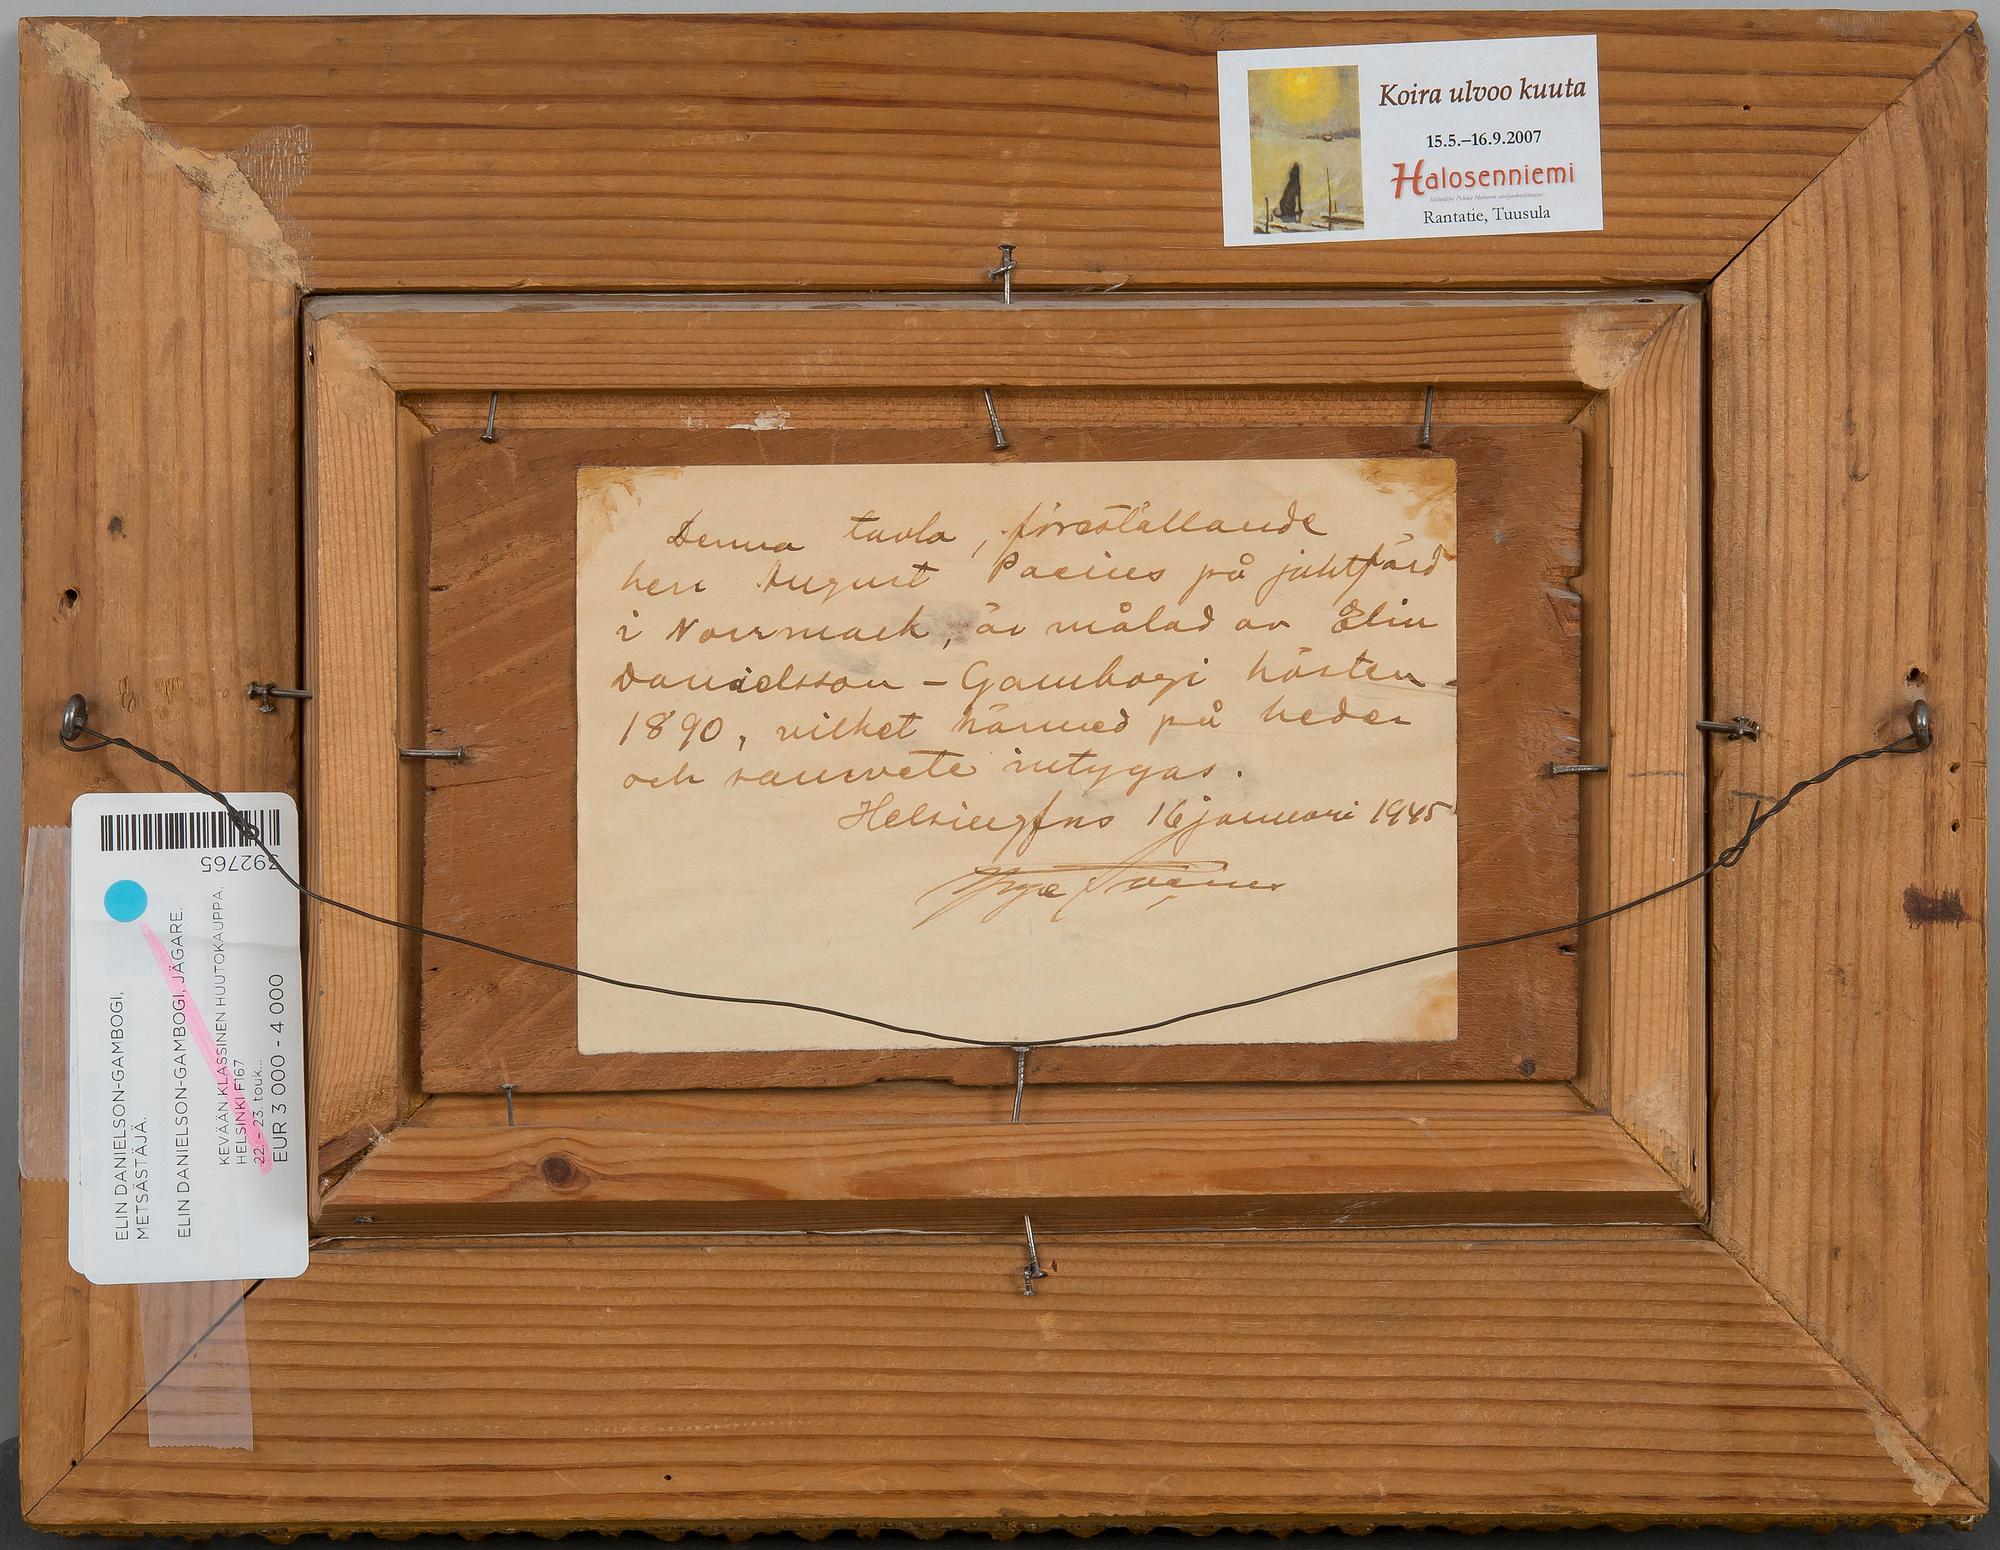 Koira ulvoo kuuta
15.5.–16.9.2007
Halosenniemi
Rantatie, Tuusula
Denna tavla, föreställande
herr August Pacius på jaktfärd
i Norrmark, är målad av Elin
Danielsson - Gambogi hösten
1890, vilket härmed på heder
och samvete intygas.
Helsingfors 16 januari 1945
392765
ELIN DANIELSON-GAMBOGI,
METSÄSTÄJÄ.
ELIN DANIELSON-GAMBOGI, JÄGARE.
KEVÄÄN KLASSINEN HUUTOKAUPPA,
HELSINKI F167
22. - 23. touk...
EUR 3 000 - 4 000